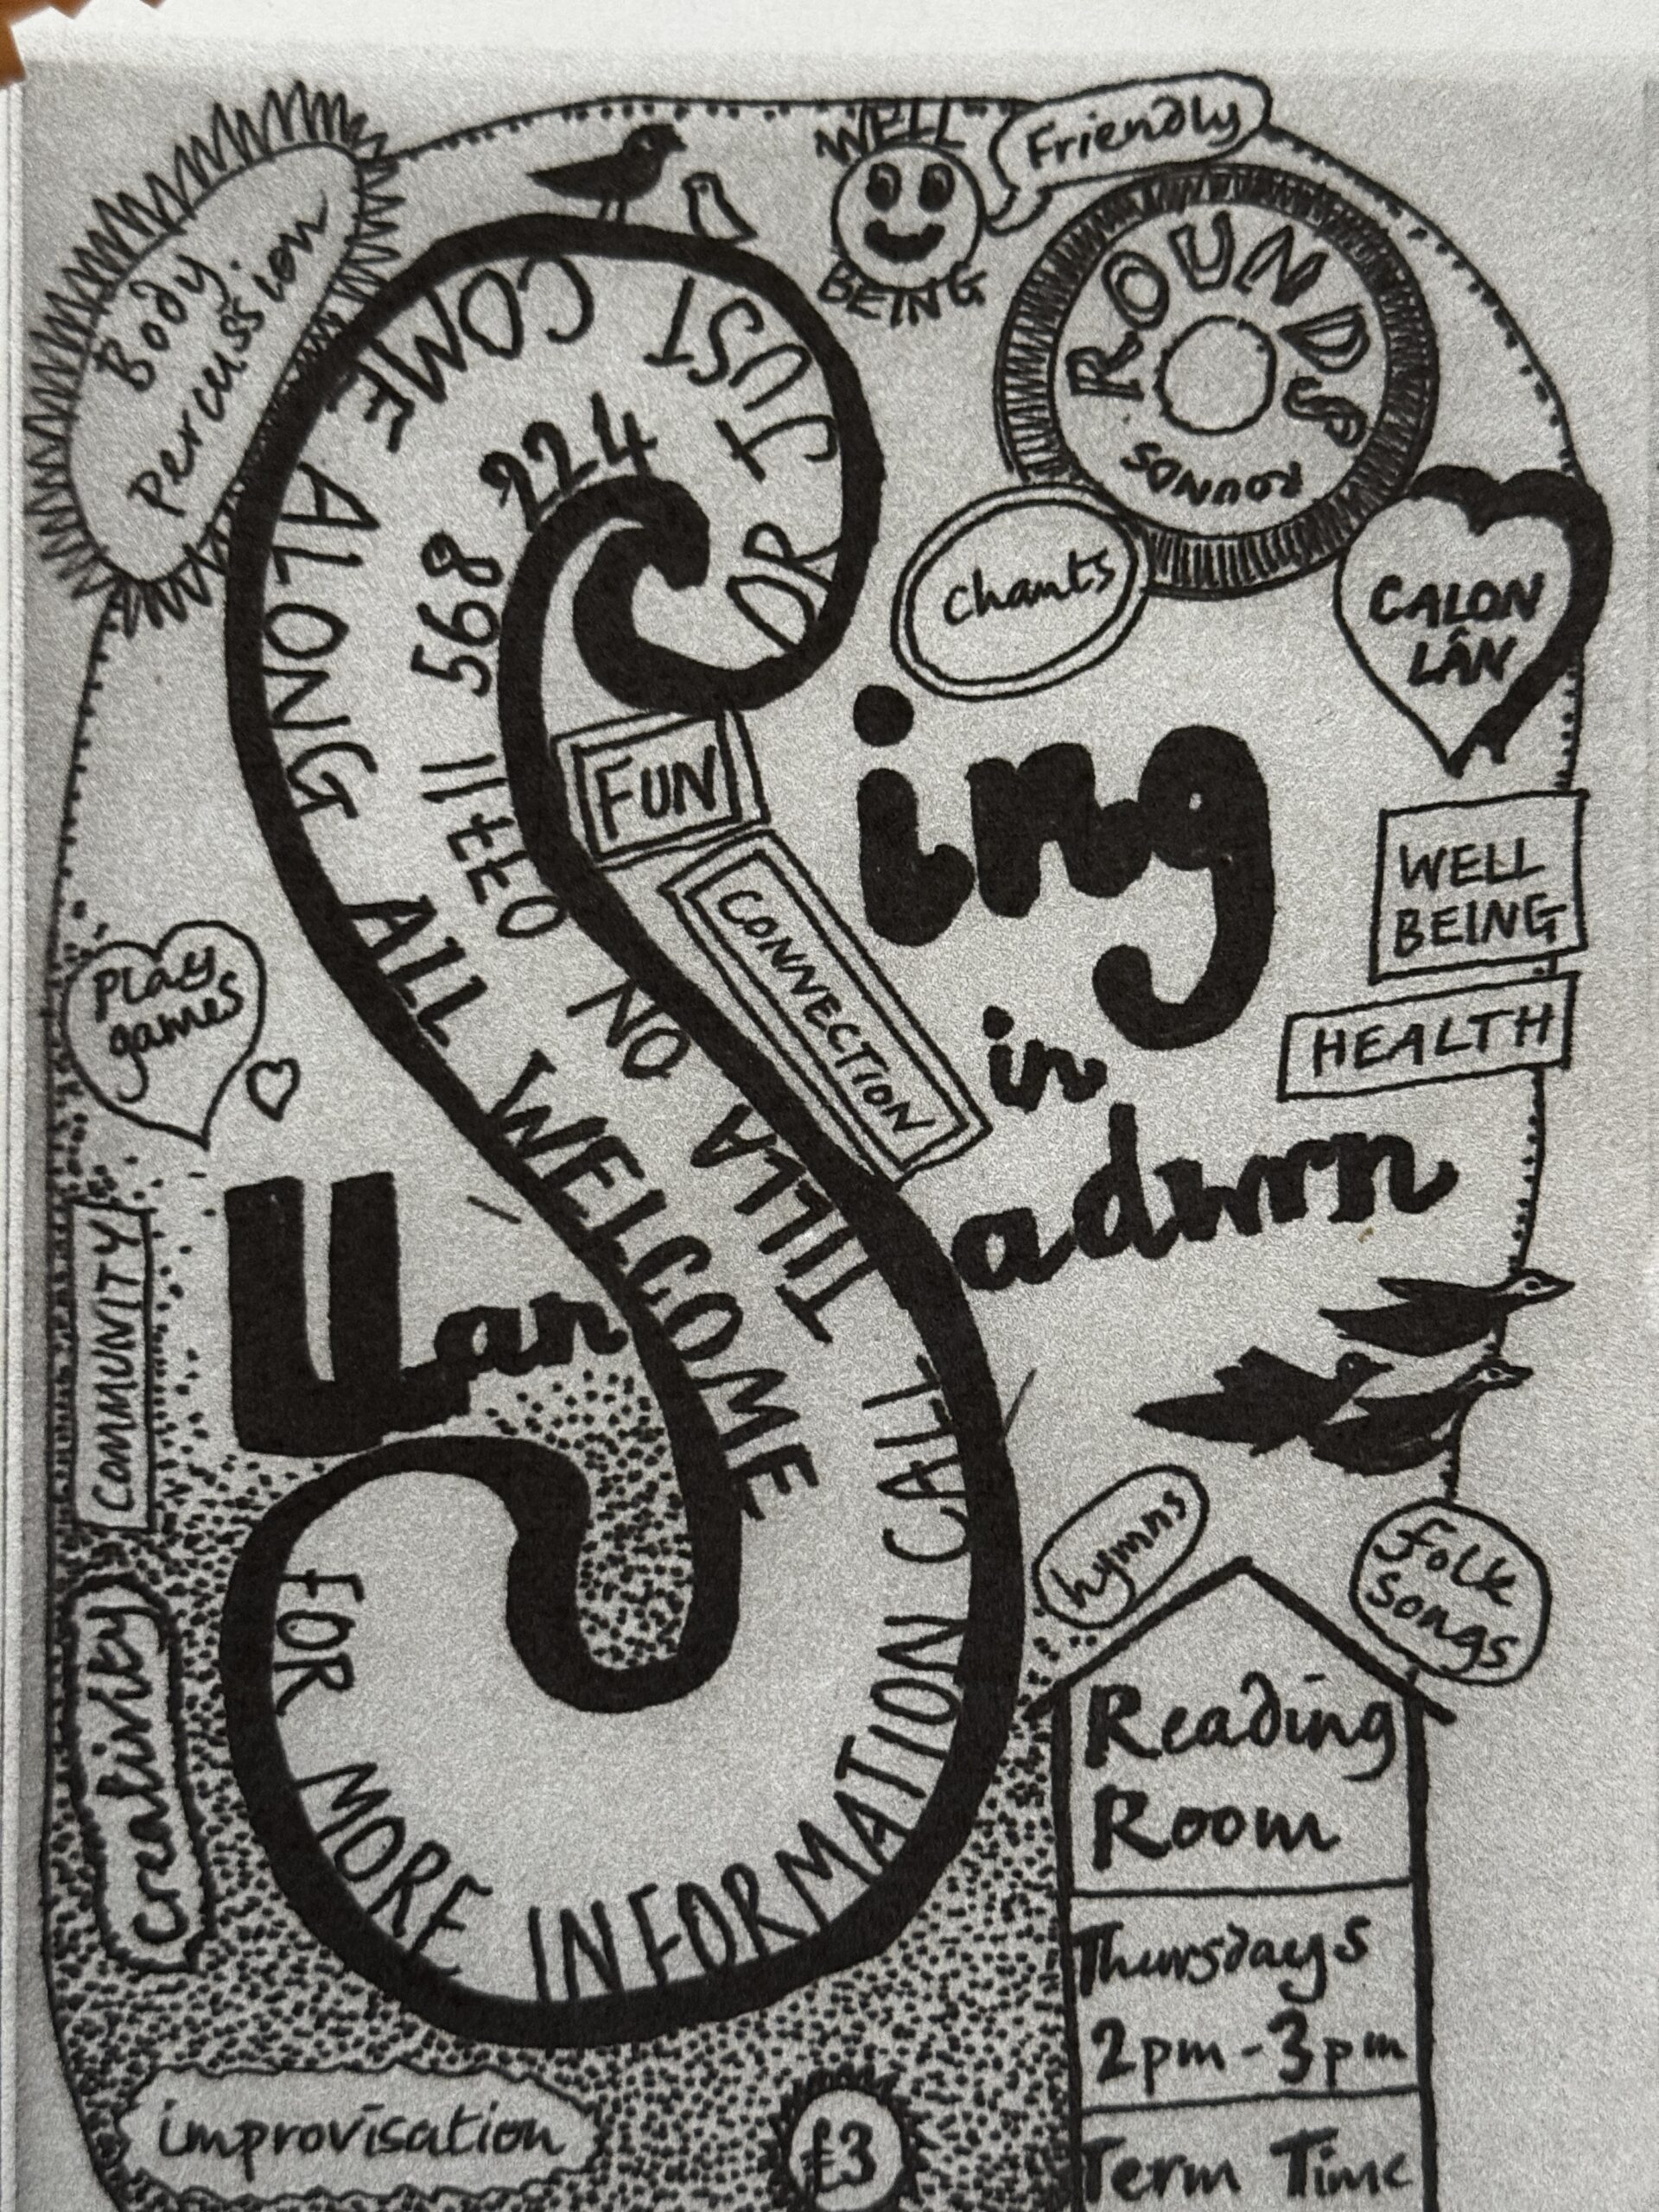 Body
Percussion
WELL
BEING
Friendly
ROUNDS
ROUNDS
Chants
CALON
LÂN
Sing
in
Llansadwrn
FUN
CONNECTION
WELL
BEING
HEALTH
Play
games
COMMUNITY
Creativity
FOR MORE INFORMATION CALL TILLA ON 07711 568 224 OR JUST COME ALONG ALL WELCOME
hymns
folk
songs
Reading
Room
Thursdays
2pm - 3pm
Term Time
improvisation
£3